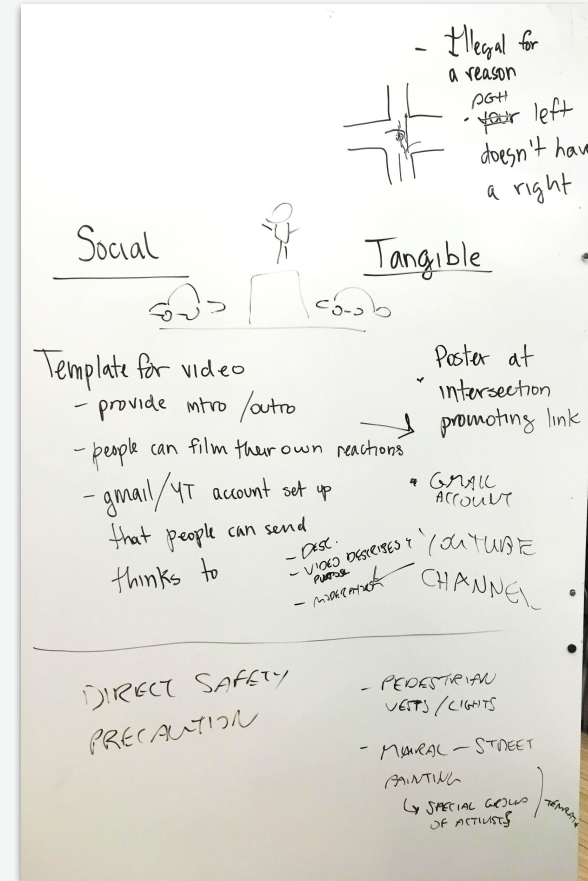 - Illegal for
a reason
PGH
• your left
doesn't hav
a right
Social
Tangible
Template for video
- provide intro/outro
- people can film their own reactions
- gmail/YT account set up
that people can send
thinks to
Poster at
• intersection
promoting link
• GMAIL
ACCOUNT
• YOUTUBE
CHANNEL
- DESC.
- VIDEO DESCRIBES
PURPOSE
- MODERATION
DIRECT SAFETY
PRECAUTION
- PEDESTRIAN
VESTS/LIGHTS
- MURAL - STREET
PAINTING
↳ SPECIAL GROUP
OF ACTIVISTS